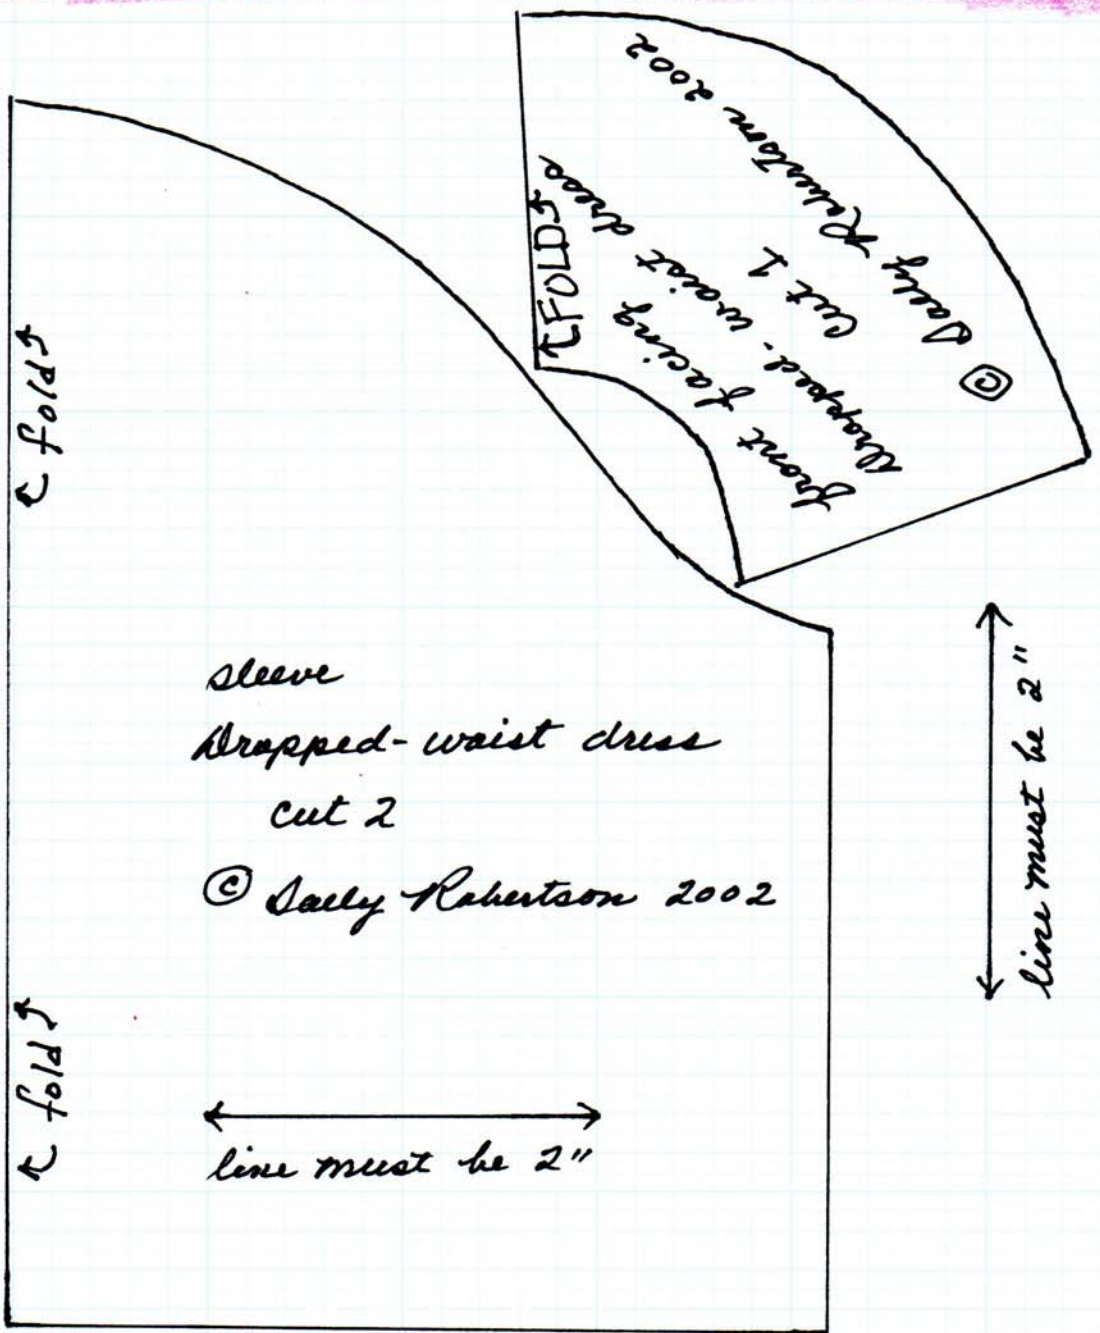 fold
FOLD
front facing
Dropped-waist dress
Cut 1
© Sally Robertson 2002
sleeve
Dropped-waist dress
cut 2
© Sally Robertson 2002
line must be 2"
fold
line must be 2"